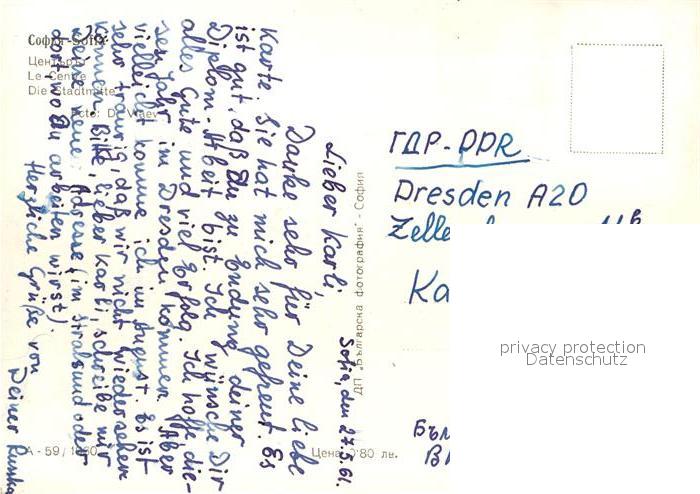 София-Sofia
Центърът
Le Centre
Die Stadtmitte
Foto: D. Vlaev
Sofia, den 27.5.61.
Lieber Karli,
Danke sehr für Deine liebe
Karte. Sie hat mich sehr gefreut. Es
ist gut, daß Du zu Endung deiner
Diplom-Arbeit bist. Ich wünsche Dir
alles Gute und viel Erfolg. Ich hoffe, die-
ses Jahr im Dresden kommen. Aber
vielleicht komme ich im August. Es ist
sehr traurig, daß wir nicht wiedersehen
können. Bitte, lieber Karli, schreibe mir
Deine neue Adresse (im Stralsund oder
dort wo Du arbeiten wirst).
Herzliche Grüße von
Deiner
А-59/1960
ДП „Българска фотография" - София
Цена 0·80 лв.
ГДР-DDR
Dresden A20
Zelle
Ka
Бъл
privacy protection
Datenschutz